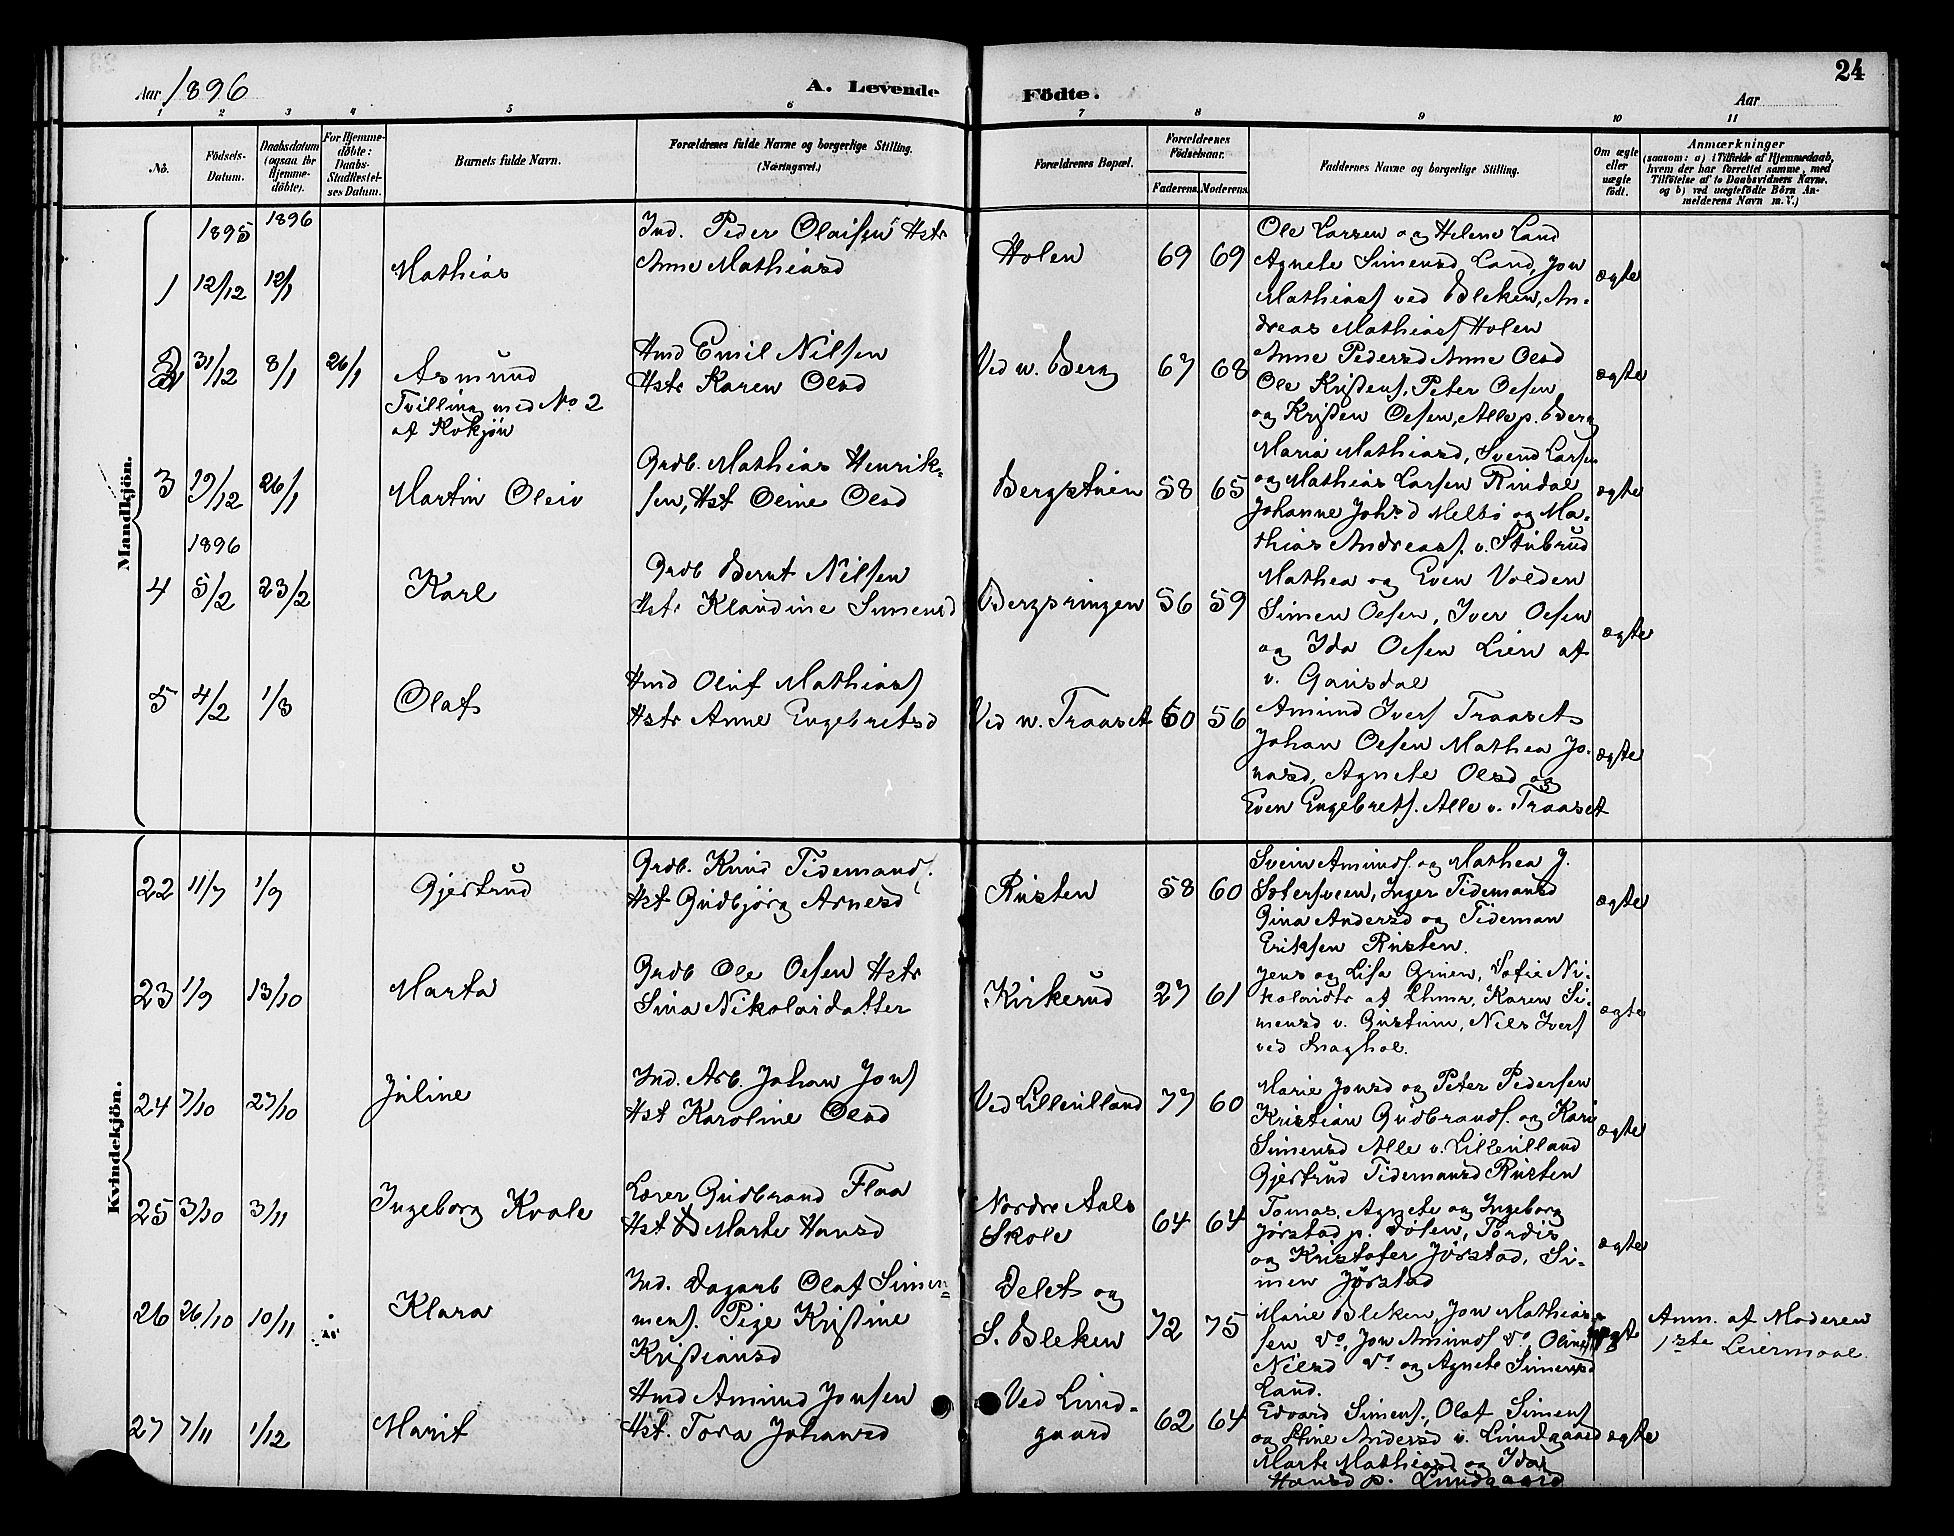 24
Aar 1896
A. Levende Födte.
Aar
1 2 3 4 5 6 7 8 9 10 11
No.
Födsels-Datum.
Daabsdatum (ogsaa for Hjemmedöbte).
For Hjemmedöbte: Daabs-Stadfæstelses Datum.
Barnets fulde Navn.
Forældrenes fulde Navne og borgerlige Stilling.
(Næringsvei.)
Forældrenes Bopæl.
Forældrenes Födselsaar.
Faderens. Moderens.
Faddernes Navne og borgerlige Stilling.
Om ægte eller uægte födt.
Anmærkninger
(saasom: a) i Tilfælde af Hjemmedaab, hvem der har forrettet samme, med Tilföielse af to Daabsvidners Navne, og b) ved uægtefödte Börn Anmelderens Navn m. V.)
Mandkjön.
1895 1896
1 12/12 12/1 Mathias
Ind. Peder Olaisen Hstr
Anne Mathiasd
Holen 69 69
Ole Larsen og Helene Land
Agnete Simensd Land, Jon
Mathiass ved Bleken, An-
dreas Mathiass Holen
ægte
2 31/12 8/1 26/1 Asmund
Tvilling med No 2
af Kvkjön
Hmd Emil Nilsen
Hstr Karen Olsd
Ved n. Berg 67 68
Anne Pedersd Anne Olsd
Ole Kristens, Peter Olsen
og Kristen Olsen, Alle p. Berg
ægte
3 19/12 26/1 Martin Oleiv
Grdb. Mathias Henrik-
sen, Hst Oline Olsd
Bergstuen 58 65
Maria Mathiasd, Svend Larsen
og Mathias Larsen Rindal
Johanne Johsd Melbö og Ma-
thias Andreass. v. Stubrud
ægte
1896
4 5/2 23/2 Karl
Grdb Bernt Nilsen
Hstr Klaudine Simensd
Bergsringen 56 59
Mathea og Even Volden
Simen Olsen, Iver Olsen
og Ida Olsen Lien af
v. Gausdal
ægte
5 4/2 1/3 Olaf
Hmd Oluf Mathiass
Hstr Anne Engebretsd
Ved n. Traaset 60 56
Amund Ivers Traaset
Johan Olsen Mathea Jo-
nasd, Agnete Olsd og
Even Engebrets. Alle v. Traaset
ægte
Kvindekjön.
22 11/7 1/9 Gjertrud
Grdb. Knud Tidemands.
Hst Gudbjörg Arnesd
Rusten 58 60
Svein Amunds. og Mathea J.
Sötersveen, Inger Tidemansd
Gina Andersd og Tideman
Eriksen Rusten.
ægte
23 1/9 13/10 Marta
Grdb Ole Olsen Hstr
Sina Nikolaidatter
Kirkerud 27 61
Jens og Lisa Gruen, Sofie Ni-
kolaidtr af Lhmr, Karen Si-
mensd v. Gustum, Nils Ivers
ved Snaghol.
ægte
24 7/10 27/10 Juline
Ind. Arb. Johan Jons
Hst Karoline Olsd
Ved Lilleulland 77 60
Marie Jonsd og Peter Pedersen
Kristian Gudbrands. og Kari
Simensd Alle v. Lilleulland
Gjertrud Tidemansd Rusten
ægte
25 3/10 3/11 Ingeborg Kvale
Lærer Gudbrand Flaa
Hst Marte Hansd
Nordre Aals
Skole
64 64
Tomas, Agnete og Ingeborg
Jörstad p. Dölen, Tordis
og Kristofer Jörstad, Si-
men Jörstad
ægte
26 26/10 10/11 Klara
Ind. Dagarb Olaf Simen-
mens. Pige Kristine
Kristiansd
Delet og
S. Bleken
72 75
Marie Bleken, Jon Mathias-
sen do, Jon Amunds do, Oline
Nilsd do og Agnete Simensd
Land.
Anm. af Moderen
1ste Leiermaal
27 7/11 1/12 Marit
Hmd Amund Jonsen
Hst. Tora Johansd
Ved Lund-
gaard
62 64
Edvard Simens., Olaf Simens
og Stine Andersd v. Lundgaard
Marte Mathiasd og Ida
Hansd p. Lundgaard
ægte